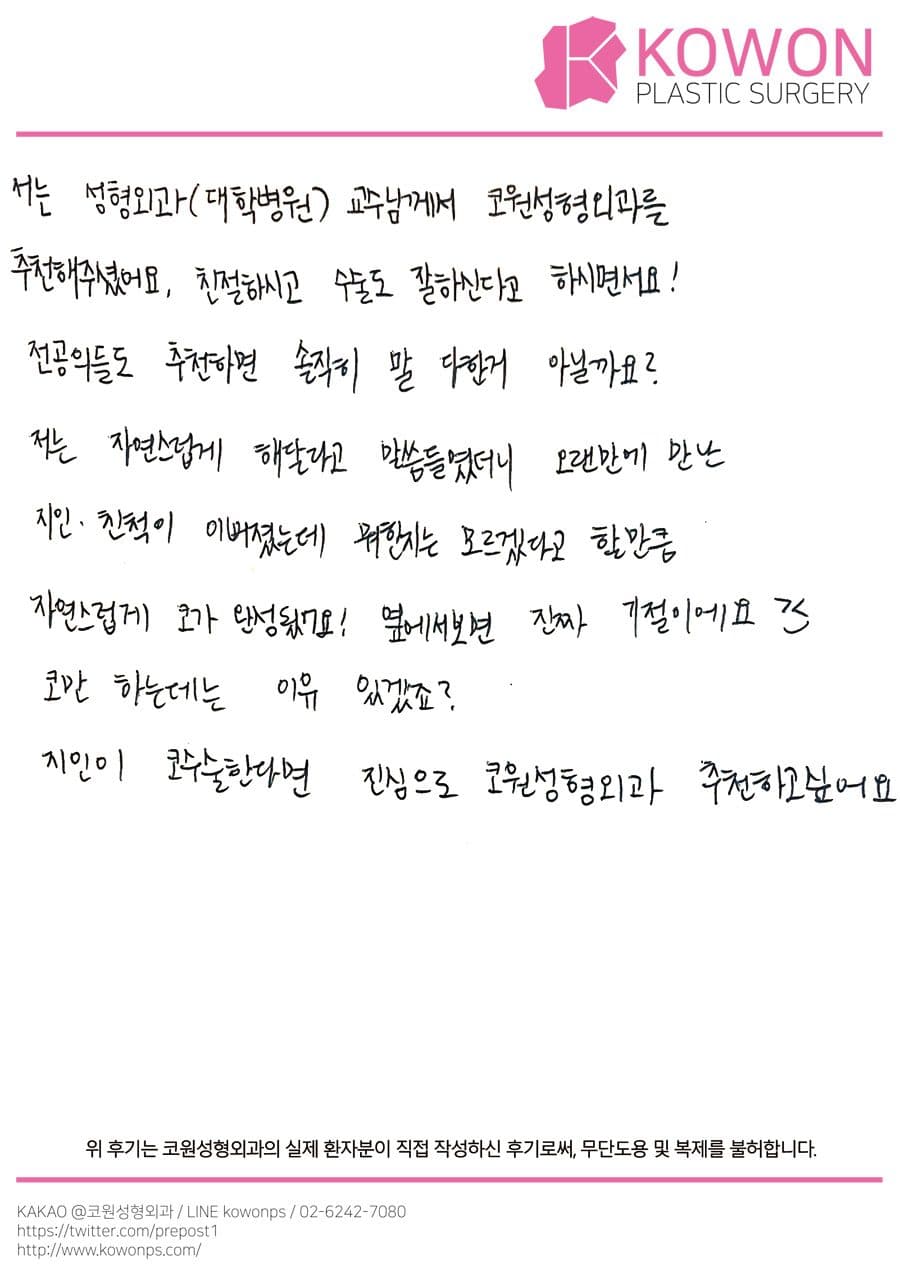 KOWON
PLASTIC SURGERY
저는 성형외과(대학병원) 교수님께서 코원성형외과를
추천해주셨어요, 친절하시고 수술도 잘하신다고 하시면서요!
전공의들도 추천하면 솔직히 말 다한거 아닐까요?
저는 자연스럽게 해달라고 말씀드렸더니 오랜만에 만난
지인·친척이 이뻐졌는데 뭐한지는 모르겠다고 할만큼
자연스럽게 코가 완성됐거든요! 옆에서보면 진짜 기절이에요 ㅋㅋ
코만 하는데는 이유 있겠죠?
지인이 코수술한다면 진심으로 코원성형외과 추천하고싶어요
위 후기는 코원성형외과의 실제 환자분이 직접 작성하신 후기로써, 무단도용 및 복제를 불허합니다.
KAKAO @코원성형외과 / LINE kowonps / 02-6242-7080
https://twitter.com/prepost1
http://www.kowonps.com/